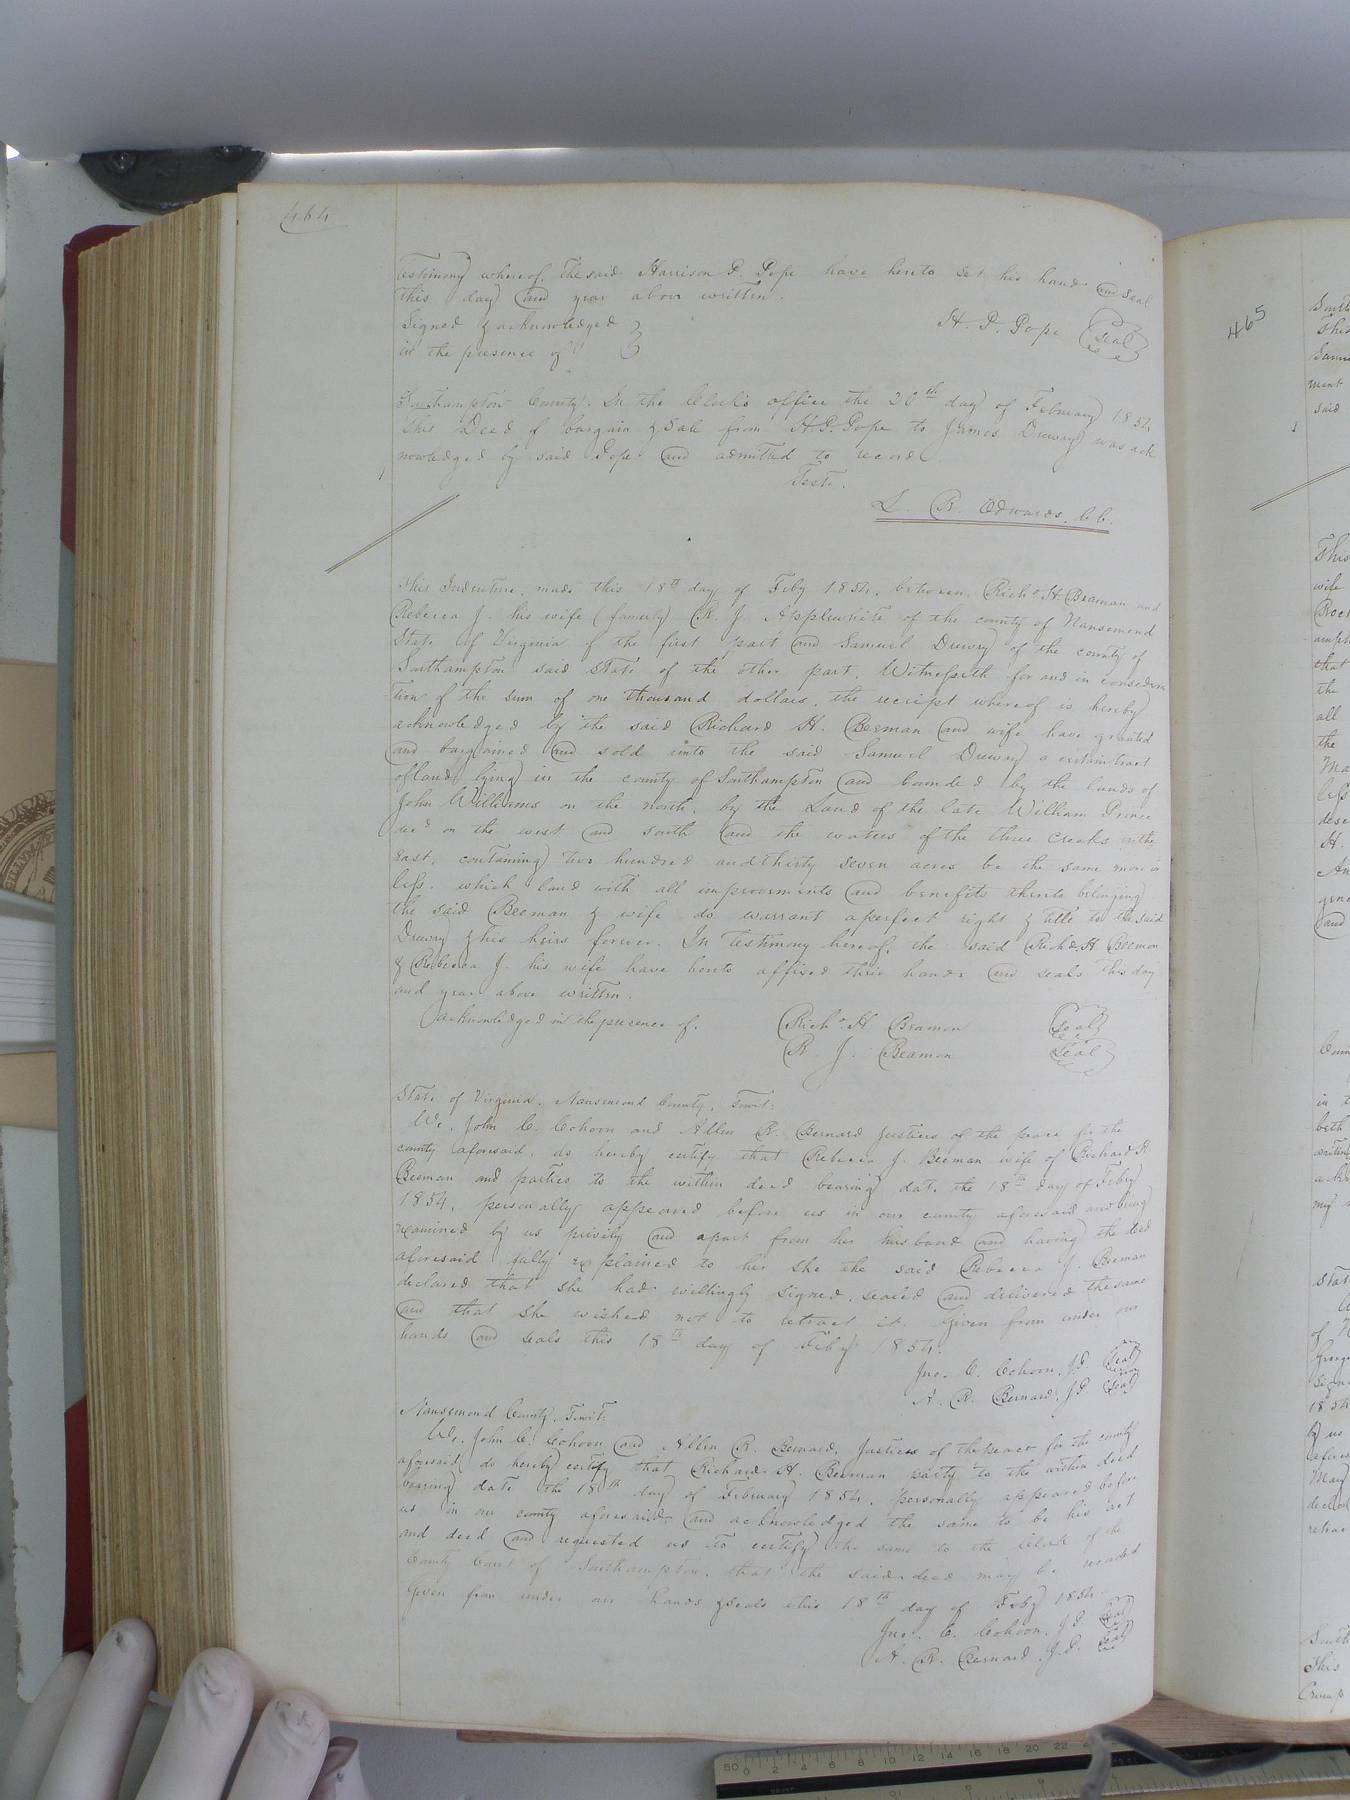 464
Testimony whereof. The said Harrison P. Pope have hereto set his hand and seal
this day and year above written.
Signed & acknowledged
in the presence of
H. P. Pope seal
Southampton County. In the Clerk's office the 20th day of February 1854
This Deed of bargain & Sale from H. P. Pope to James Drewry was ack
nowledged by said Pope and admitted to record
Teste.
L. R. Edwards. C C.
This Indenture, made this 18th day of Feby 1854, between Richd. H. Beaman and
Rebecca J. his wife (formerly) R. J. Applewhite of the county of Nansemond
State of Virginia of the first part and Samuel Drewry of the county of
Southampton said State of the other part. Witnesseth for and in considera
tion of the sum of one thousand dollars, the receipt whereof is hereby
acknowledged by the said Richard H. Beeman and wife have granted
and bargained and sold unto the said Samuel Drewry a certain tract
of land lying in the county of Southampton and bounded by the lands of
John Williams on the north, by the Land of the late William Prince
decd on the west and south and the waters of the three creeks on the
east, containing two hundred and thirty seven acres be the same more or
less. which land with all improvements and benefits thereto belonging
the said Beeman & wife do warrant a perfect right & title to the said
Drewry & his heirs forever. In Testimony hereof, the said Richd. H Beemon
& Rebecca J. his wife have hereto affixed their hands and seals this day
and year above written.
acknowledged in the presence of.
Richd. H Beamon seal
R. J. Beamon seal
State of Virginia. Nansemond County, Towit:
We, John C. Cohoon and Allen R. Bernard Justices of the peace for the
county aforesaid, do hereby certify that Rebecca J. Beeman wife of Richard H.
Beeman and parties to the within deed bearing date the 18th day of Feby
1854, personally appeared before us in our county aforesaid and being
examined by us privily and apart from her husband and having the deed
aforesaid fully explained to her she the said Rebecca J. Beeman
declared that she had willingly signed, sealed and delivered the same
and that she wished not to retract it. Given from under our
hands and seals this 18th day of Feby 1854.
Jno. C. Cohoon. J.P. seal
A. R. Bernard. J.P. seal
Nansemond County. Towit:
We, John C. Cohoon and Allen R. Bernard, Justices of the peace for the county
aforesaid do hereby certify that Richard H. Beeman party to the within deed
bearing date the 18th day of February 1854, personally appeared before
us in our county aforesaid, and acknowledged the same to be his act
and deed and requested us to certify the same to the Clerk of the
County Court of Southampton, that the said deed may be recorded
Given from under our hands & seals this 18th day of Feby 1854.
Jno. C. Cohoon. J.P. seal
A. R. Bernard. J.P. seal
465